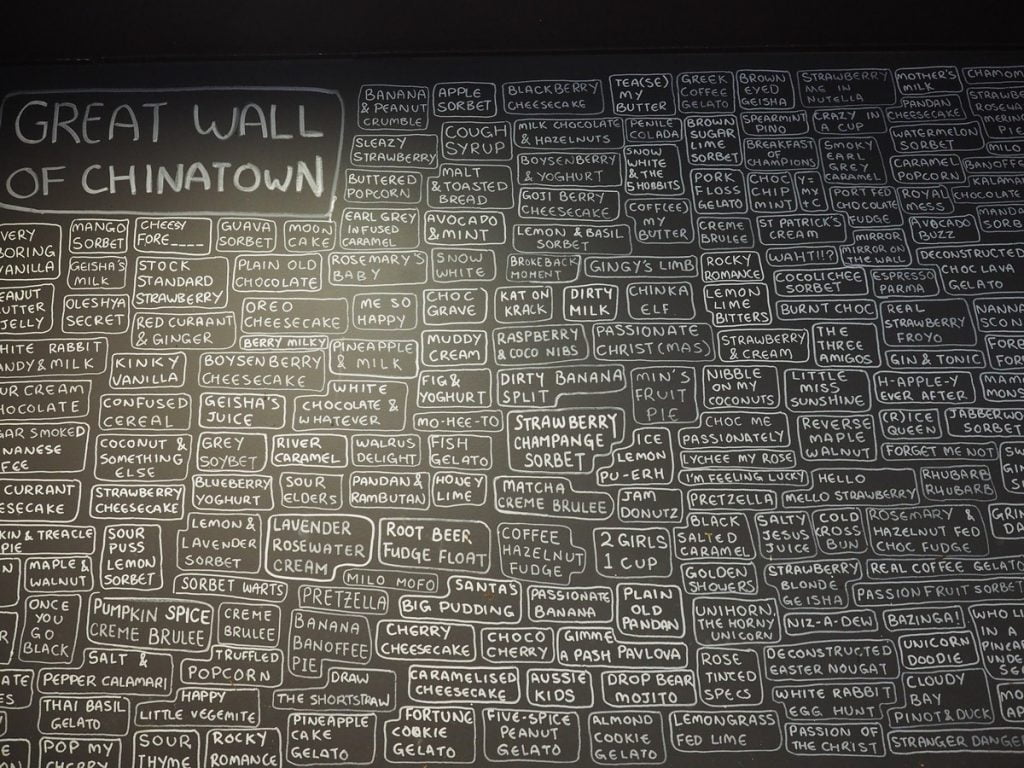 GREAT WALL
OF CHINATOWN
BANANA
& PEANUT
CRUMBLE
APPLE
SORBET
BLACKBERRY
CHEESECAKE
TEA(SE)
MY
BUTTER
GREEK
COFFEE
GELATO
BROWN
EYED
GEISHA
STRAWBERRY
ME IN
NUTELLA
MOTHER'S
MILK
SLEAZY
STRAWBERRY
COUGH
SYRUP
MILK CHOCOLATE
& HAZELNUTS
PENILE
COLADA
BROWN
SUGAR
LIME
SORBET
SPEARMINT
PINO
CRAZY IN
A CUP
PANDAN
CHEESECAKE
WATERMELON
SORBET
BUTTERED
POPCORN
MALT
& TOASTED
BREAD
BOYSENBERRY
& YOGHURT
SNOW
WHITE
& THE
5 HOBBITS
BREAKFAST
OF
CHAMPIONS
SMOKY
EARL
GREY
CARAMEL
CARAMEL
POPCORN
GOJI BERRY
CHEESECAKE
PORK
FLOSS
GELATO
CHOC
CHIP
MINT
Y=
MY
+C
PORT FED
CHOCOLATE
FUDGE
ROYAL
MESS
VERY
BORING
VANILLA
MANGO
SORBET
CHEESY
FORE____
GUAVA
SORBET
MOON
CAKE
EARL GREY
INFUSED
CARAMEL
AVOCADO
& MINT
LEMON & BASIL
SORBET
COF(FEE)
MY
BUTTER
CREME
BRULEE
ST PATRICK'S
CREAM
MIRROR
MIRROR ON
THE WALL
AVOCADO
BUZZ
GEISHA'S
MILK
STOCK
STANDARD
STRAWBERRY
PLAIN OLD
CHOCOLATE
ROSEMARY'S
BABY
SNOW
WHITE
BROKEBACK
MOMENT
GINGY'S LIMB
ROCKY
ROMANCE
WAHT!!?
COCOLICHEE
SORBET
ESPRESSO
PARMA
DECONSTRUCTED
CHOC LAVA
GELATO
OLESHYA
SECRET
RED CURRANT
& GINGER
OREO
CHEESECAKE
ME SO
HAPPY
CHOC
GRAVE
KAT ON
KRACK
DIRTY
MILK
CHINKA
ELF
LEMON
LIME
BITTERS
BURNT CHOC
REAL
STRAWBERRY
FROYO
BERRY MILKY
PINEAPPLE
& MILK
MUDDY
CREAM
RASPBERRY
& COCO NIBS
PASSIONATE
CHRIST(MAS)
STRAWBERRY
& CREAM
THE
THREE
AMIGOS
GIN & TONIC
KINKY
VANILLA
BOYSENBERRY
CHEESECAKE
WHITE
CHOCOLATE &
WHATEVER
FIG &
YOGHURT
DIRTY BANANA
SPLIT
MIN'S
FRUIT
PIE
NIBBLE
ON MY
COCONUTS
LITTLE
MISS
SUNSHINE
H-APPLE-Y
EVER AFTER
CONFUSED
CEREAL
GEISHA'S
JUICE
MO-HEE-TO
STRAWBERRY
CHAMPANGE
SORBET
CHOC ME
PASSIONATELY
REVERSE
MAPLE
WALNUT
(R)ICE
QUEEN
COCONUT &
SOMETHING
ELSE
GREY
SOYBET
RIVER
CARAMEL
WALRUS
DELIGHT
FISH
GELATO
ICE
LEMON
PU-ERH
LYCHEE MY ROSE
FORGET ME NOT
I'M FEELING LUCKY
HELLO
MELLO STRAWBERRY
RHUBARB
RHUBARB
STRAWBERRY
CHEESECAKE
BLUEBERRY
YOGHURT
SOUR
ELDERS
PANDAN &
RAMBUTAN
HONEY
LIME
MATCHA
CREME BRULEE
JAM
DONUTZ
PRETZELLA
SOUR
PUSS
LEMON
SORBET
LEMON &
LAVENDER
SORBET
LAVENDER
ROSEWATER
CREAM
ROOT BEER
FUDGE FLOAT
COFFEE
HAZELNUT
FUDGE
2 GIRLS
1 CUP
BLACK
SALTED
CARAMEL
SALTY
JESUS
JUICE
COLD
CROSS
BUN
ROSEMARY &
HAZELNUT FED
CHOC FUDGE
MAPLE &
WALNUT
SORBET WARTS
MILO MOFO
PRETZELLA
SANTA'S
BIG PUDDING
PASSIONATE
BANANA
PLAIN
OLD
PANDAN
GOLDEN
SHOWERS
STRAWBERRY
BLONDE
GEISHA
REAL COFFEE GELATO
PASSION FRUIT SORBET
ONCE
YOU
GO
BLACK
PUMPKIN SPICE
CREME BRULEE
CREME
BRULEE
BANANA
BANOFFEE
PIE
CHERRY
CHEESECAKE
CHOCO
CHERRY
GIMME
A PASH PAVLOVA
UNIHORN,
THE HORNY
UNICORN
NIZ-A-DEW
BAZINGA!
SALT &
PEPPER CALAMARI
TRUFFLED
POPCORN
DRAW
THE SHORTSTRAW
CARAMELISED
CHEESECAKE
AUSSIE
KIDS
DROP BEAR
MOJITO
ROSE
TINTED
SPECS
DECONSTRUCTED
EASTER NOUGAT
UNICORN
DOODIE
THAI BASIL
GELATO
HAPPY
LITTLE VEGEMITE
WHITE RABBIT
EGG HUNT
CLOUDY
BAY
PINOT & DUCK
POP MY
CHERRY
SOUR
THYME
ROCKY
ROMANCE
PINEAPPLE
CAKE
GELATO
FORTUNE
COOKIE
GELATO
FIVE-SPICE
PEANUT
GELATO
ALMOND
COOKIE
GELATO
LEMONGRASS
FED LIME
PASSION OF
THE CHRIST